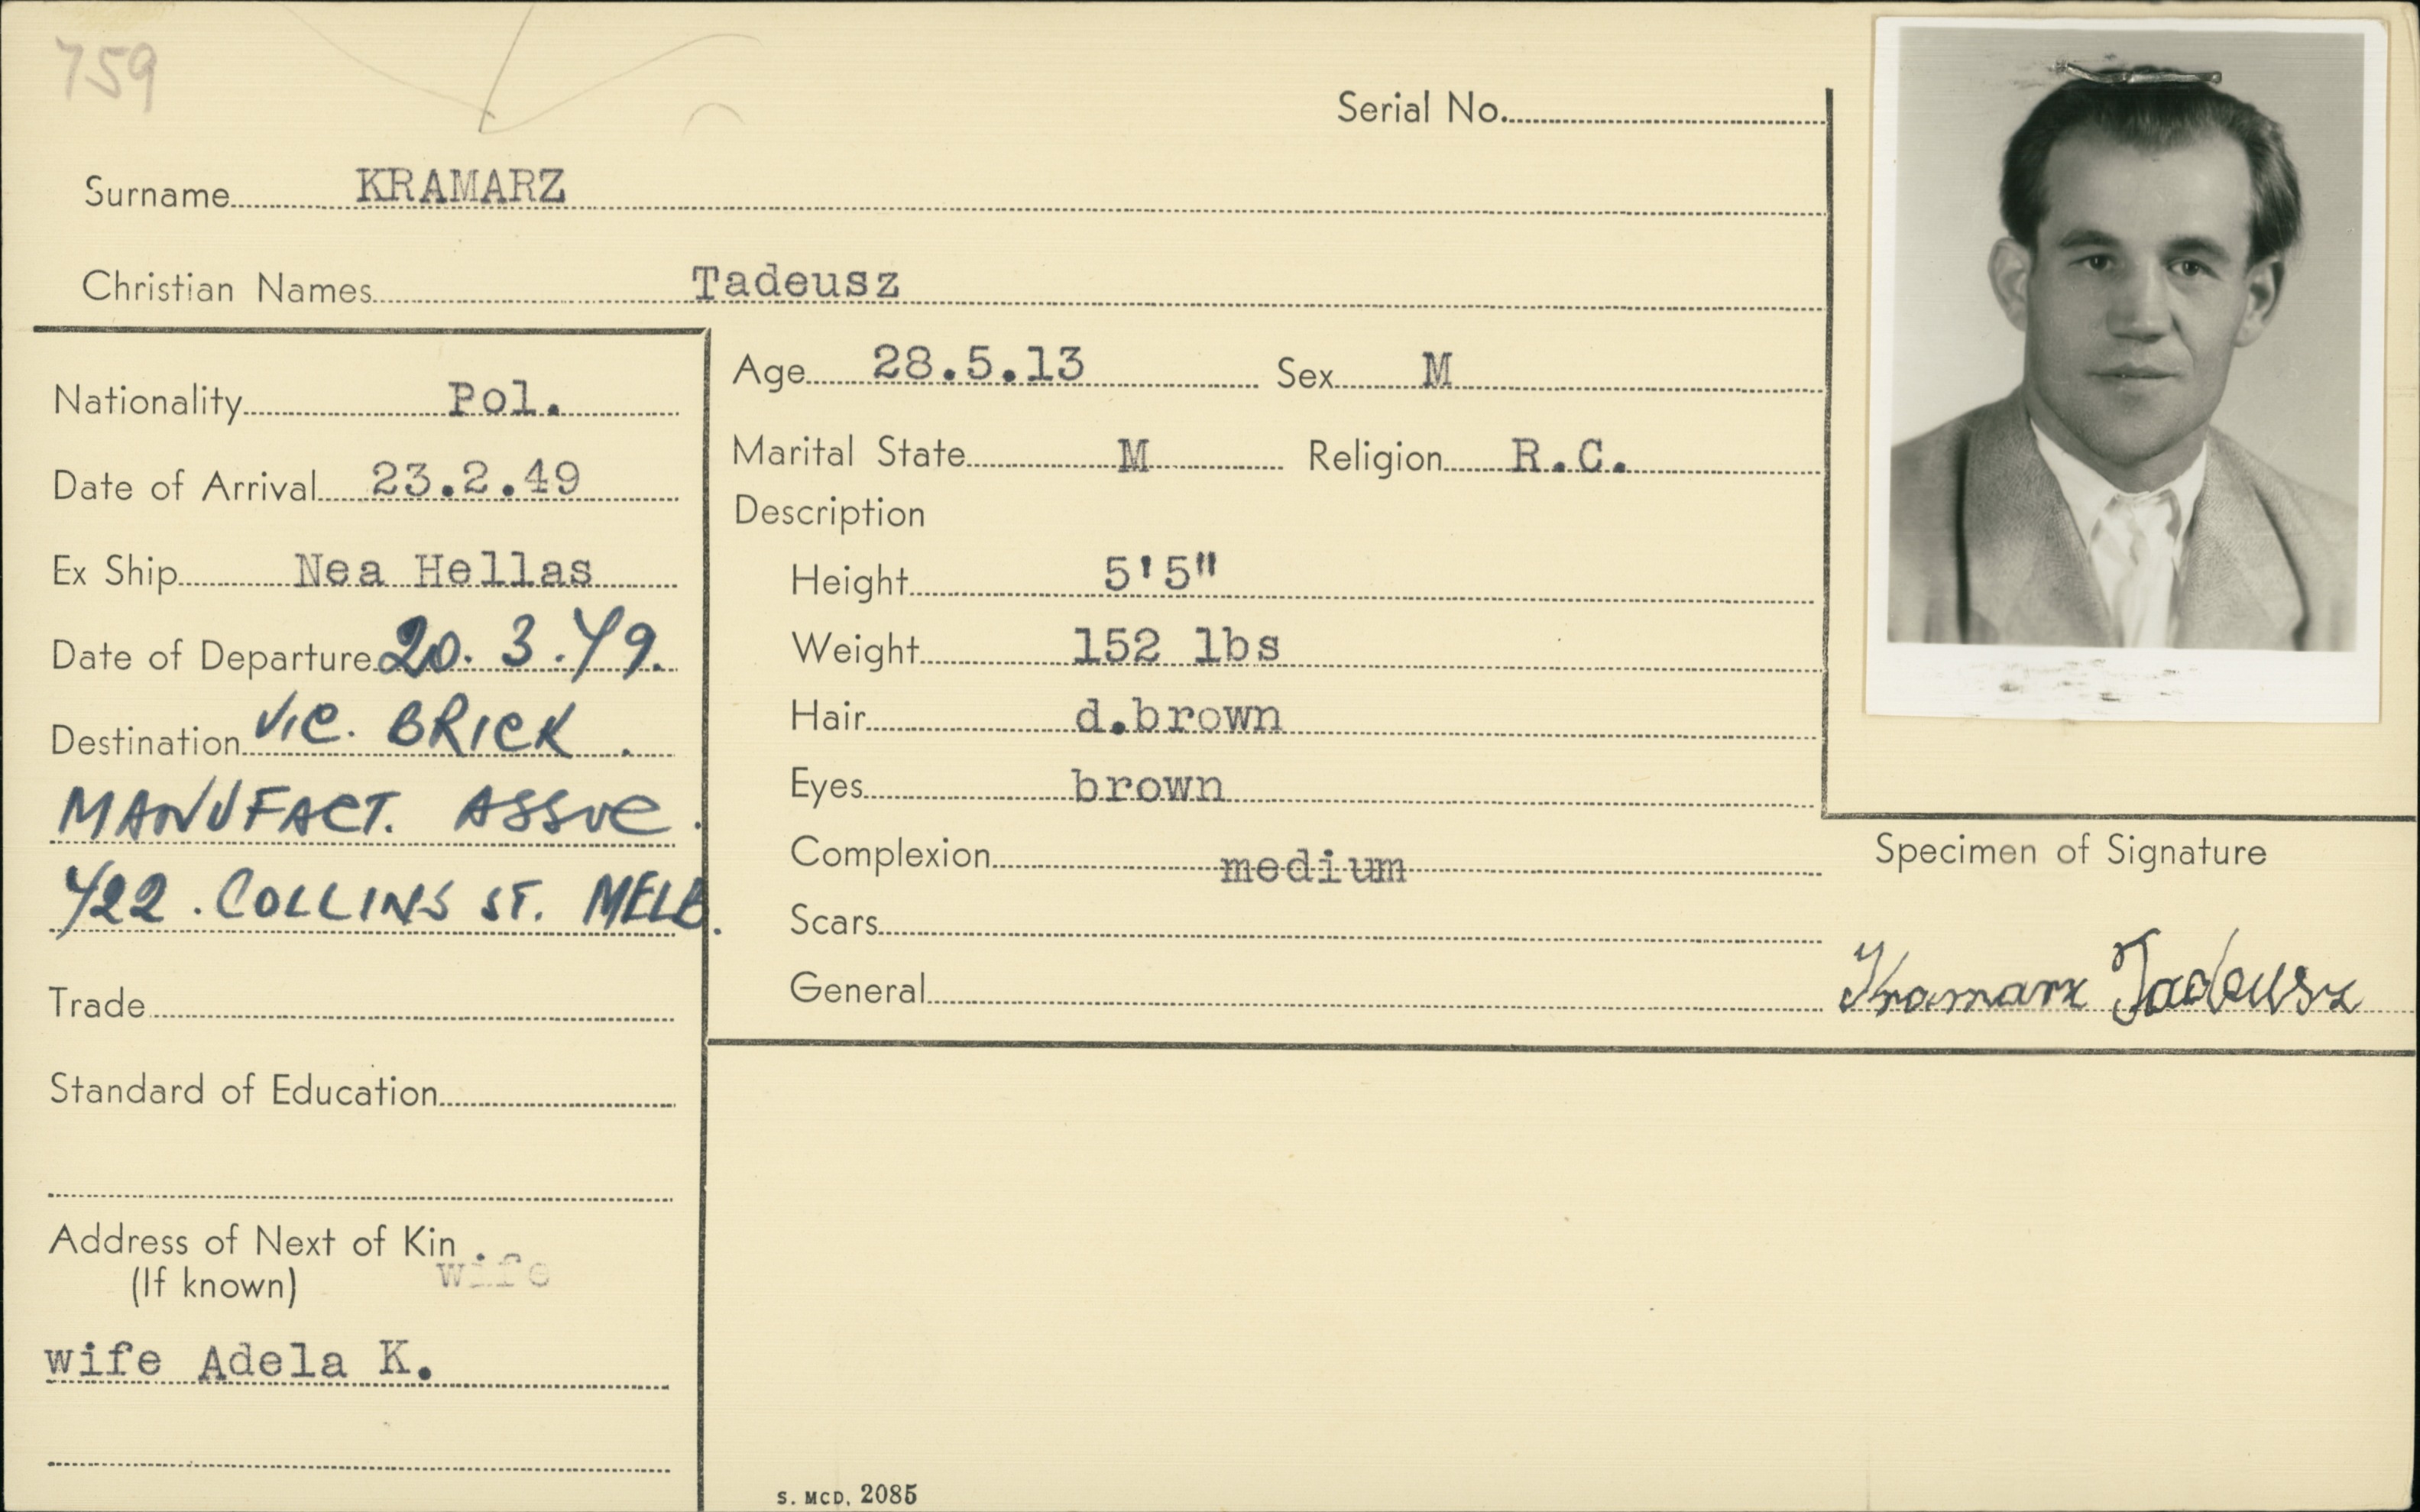 759
Serial No.
Surname KRAMARZ
Christian Names Tadeusz
Nationality Pol.
Date of Arrival 23.2.49
Ex Ship Nea Hellas
Date of Departure 20.3.49.
Destination VIC. BRICK.
MANUFACT. ASSOC.
422. COLLINS ST. MELB.
Trade
Standard of Education
Address of Next of Kin
(If known) wife
wife Adela K.
Age 28.5.13 Sex M
Marital State M Religion R.C.
Description
Height 5'5"
Weight 152 lbs
Hair d.brown
Eyes brown
Complexion medium
Scars
General
Specimen of Signature
Kramarz Tadeusz
S. MCD. 2085